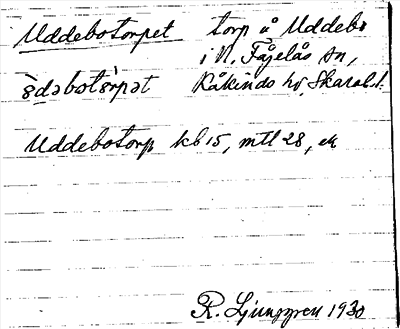 Uddebotorpet torp å Uddebo
i N. Fågelås sn,
Kåkinds hd, Skarab.l.
Uddebotorp kb 15, mtl 28, ek
R. Ljunggren 1930